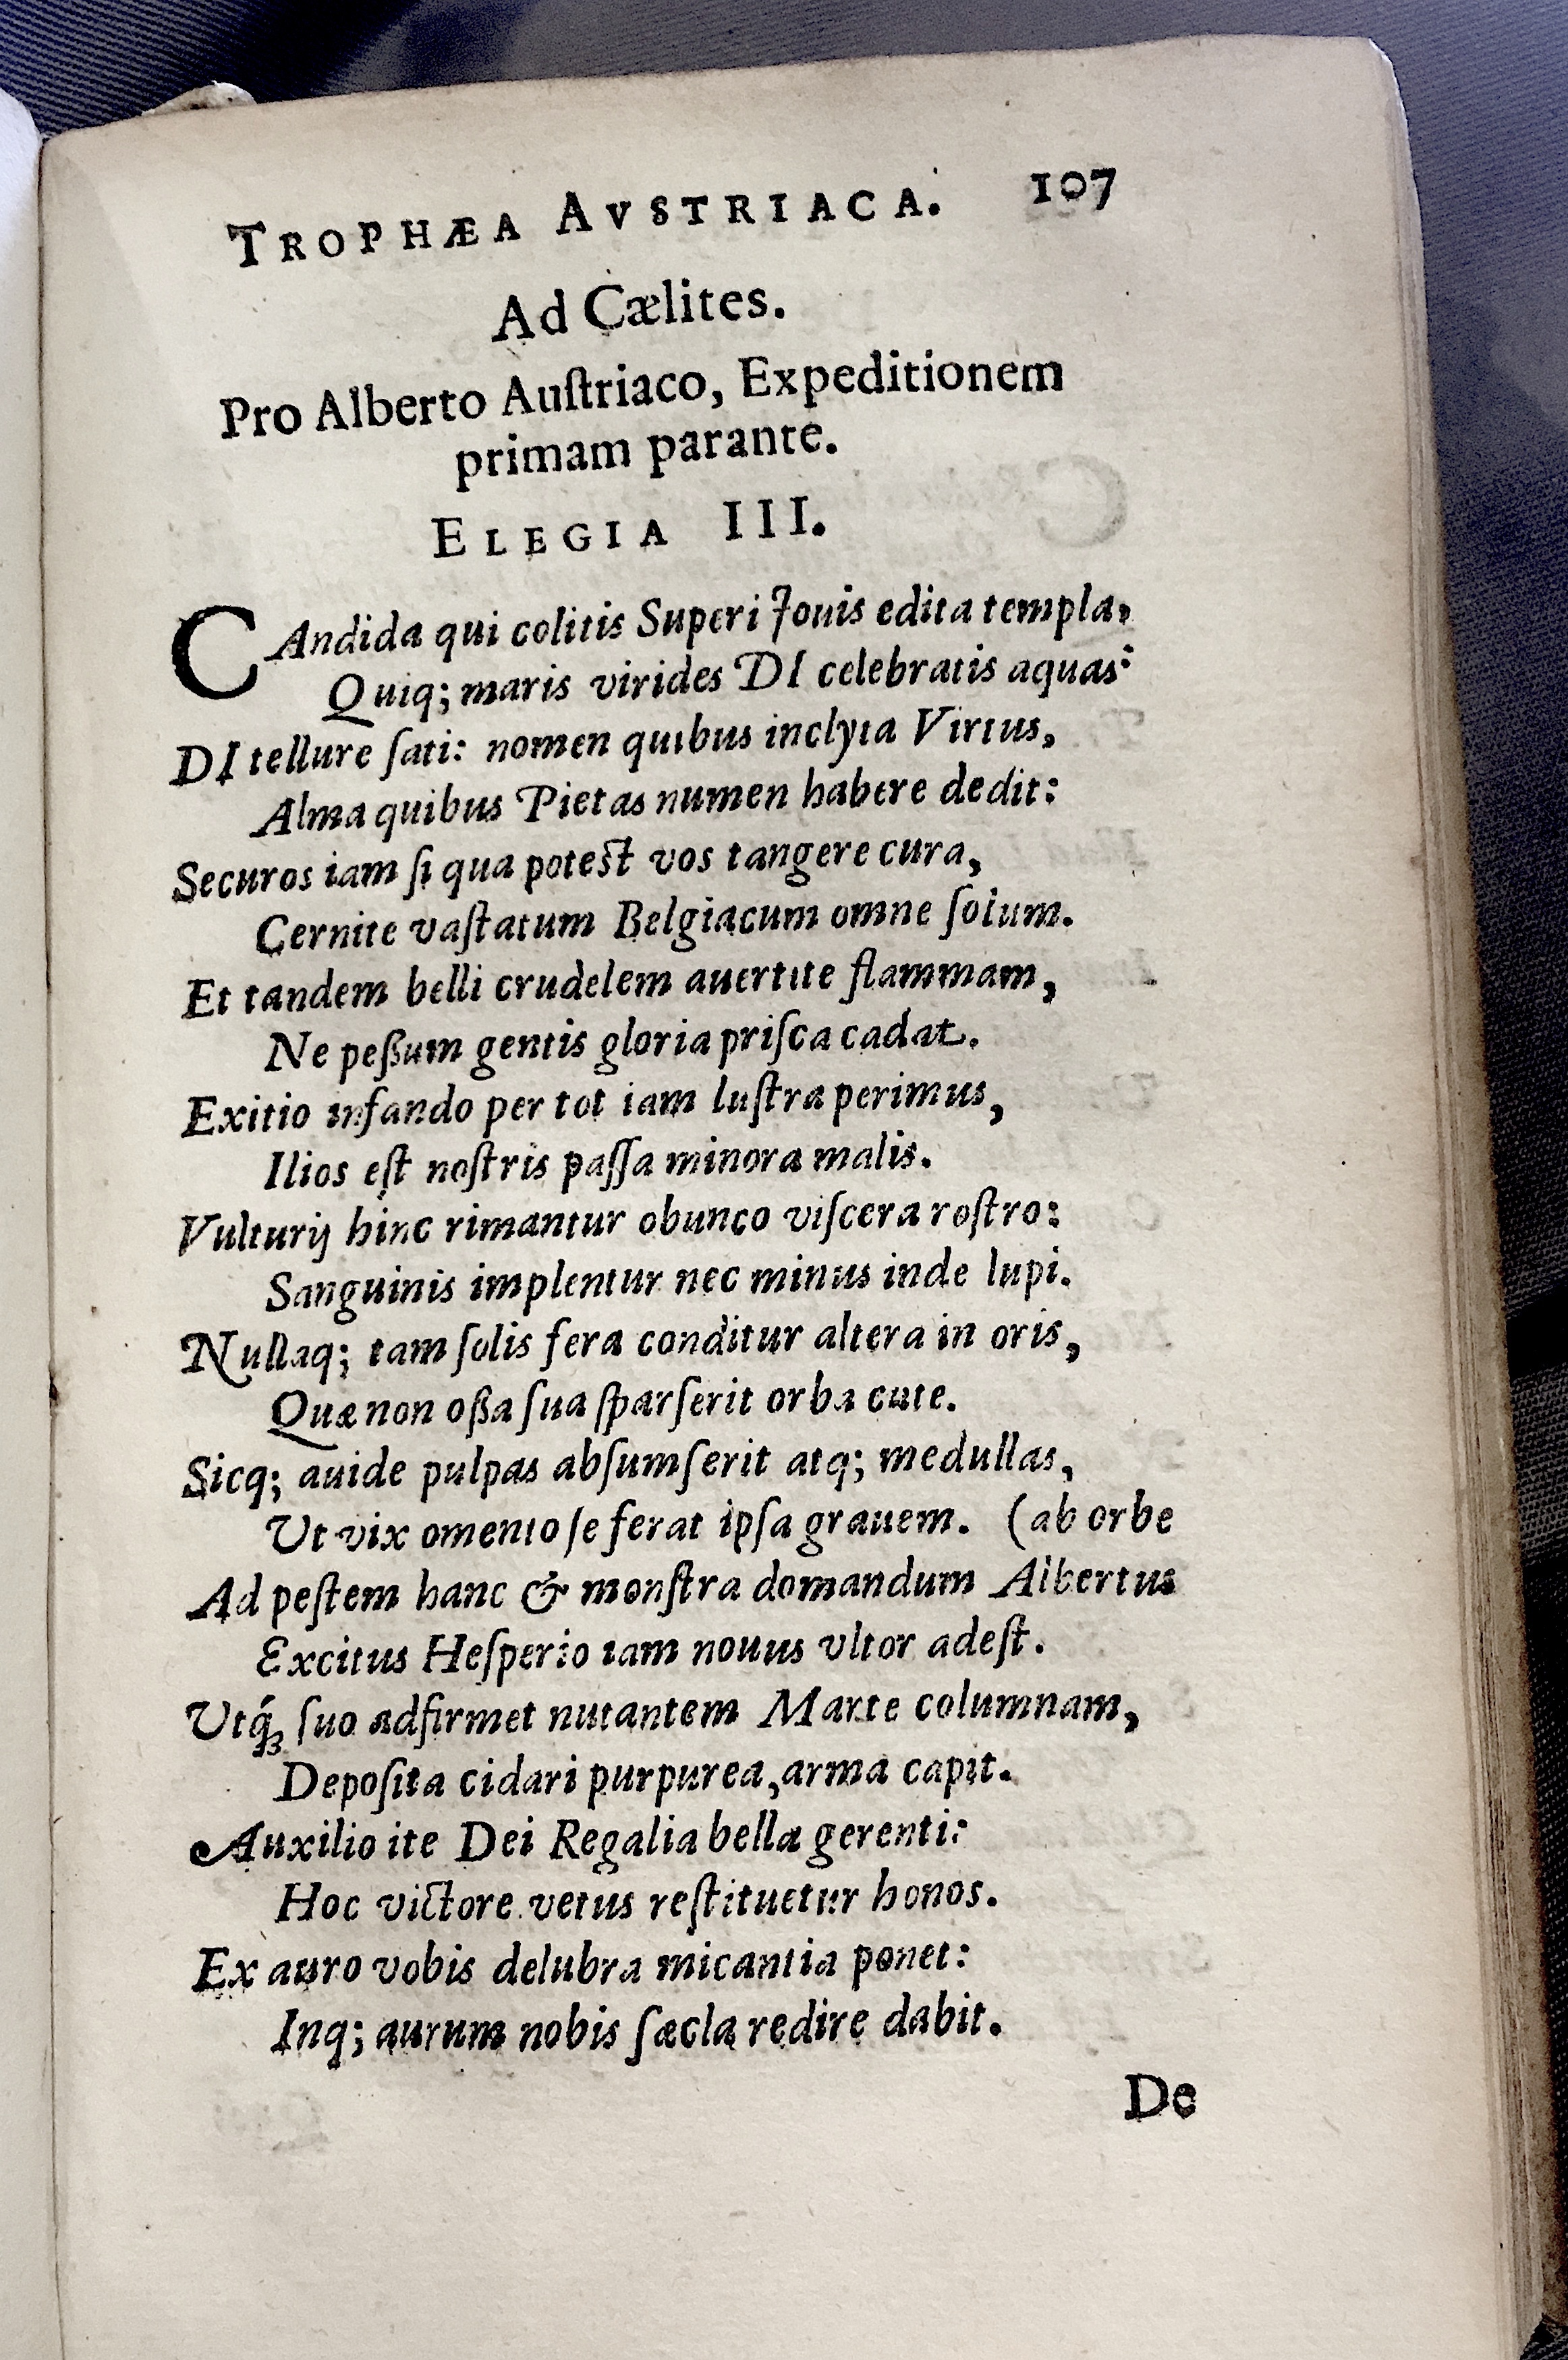 TROPHÆA AVSTRIACA. 107
Ad Cælites.
Pro Alberto Auſtriaco, Expeditionem
primam parante.
ELEGIA III.
CAndida qui colitis Superi Jouis edita templa,
Quiq; maris virides DI celebratis aquas:
DI tellure ſati: nomen quibus inclyta Virtus,
Alma quibus Pietas numen habere dedit:
Securos iam ſi qua poteſt vos tangere cura,
Cernite vaſtatum Belgiacum omne ſolum.
Et tandem belli crudelem auertite flammam,
Ne peßum gentis gloria priſca cadat.
Exitio infando per tot iam luſtra perimus,
Ilios eſt noſtris paſſa minora malis.
Vulturij hinc rimantur obunco viſcera roſtro:
Sanguinis implentur nec minus inde lupi.
Nullaq; tam ſolis fera conditur altera in oris,
Quæ non oßa ſua ſparſerit orba cute.
Sicq; auide pulpas abſumſerit atq; medullas,
Ut vix omento ſe ferat ipſa grauem. (ab orbe
Ad peſtem hanc & monſtra domandum Albertus
Excitus Heſperio iam nouus vltor adeſt.
Utq́ꝫ ſuo adfirmet nutantem Marte columnam,
Depoſita cidari purpurea, arma capit.
Auxilio ite Dei Regalia bella gerenti:
Hoc victore vetus reſtituetur honos.
Ex auro vobis delubra micantia ponet:
Inq; aurum nobis ſæcla redire dabit.
De